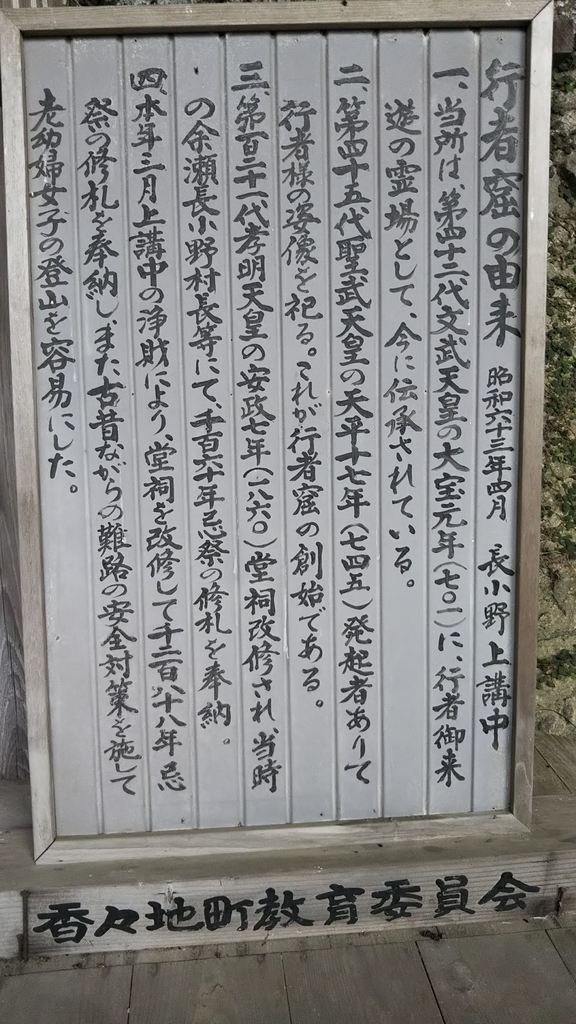 行者窟の由来 昭和六十三年四月 長小野上講中
一、当所は、第四十二代文武天皇の大宝元年(七〇一)に、行者御来
遊の霊場として、今に伝承されている。
二、第四十五代聖武天皇の天平十七年(七四五)発起者ありて
行者様の姿像を祀る。これが行者窟の創始である。
三、第百二十一代孝明天皇の安政七年(一八六〇)堂祠改修され、当時
の余瀬長小野村長等にて、千百六十年忌祭の修札を奉納。
四、本年三月上講中の浄財により、堂祠を改修して千二百八十八年忌
祭の修札を奉納し、また古昔ながらの難路の安全対策を施して
老幼婦女子の登山を容易にした。
香々地町教育委員会